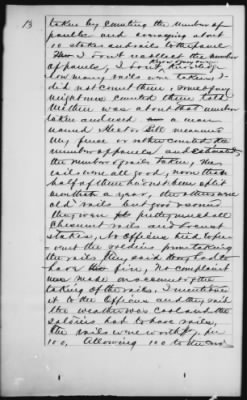 13
taken by counting the number of
panels and averaging about
10 stakes and rails to the panel
I don't recollect the number
of panels, I don't know
how many rails were taken I
did not count them, Some of our
neighbors counted them told
Mother was about that number
taken and used a man
named Hector Sill measured
my fence or rather counted the
number of panels and estimated
the number of rails taken, The
rails were all good, more than
half of them had not been split
more than a year, the others were
old rails but good & sound
they were pretty much all
Chesnut rails and Locust
stakes, No Officer tried to prevent
the soldiers from taking
the rails, they said they had to
have fire, No complaint
was made on account of the
taking of the rails. I mentioned
it to the Officers and they said
the weather was cold and the
soldiers had to have rails,
The rails were worth per
100, allowing 100 to the